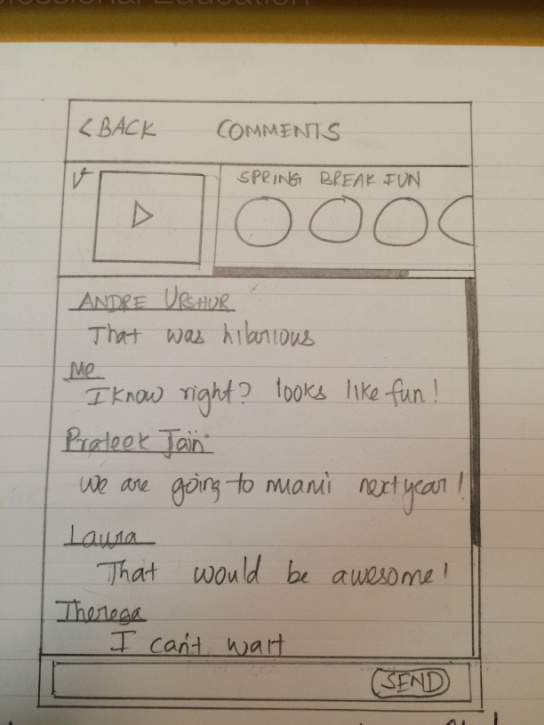 ofessional Education
< BACK COMMENTS
SPRING BREAK FUN
ANDRE
That was hilarious
Me
I know right? looks like fun!
Prateek Jain
we are going to miami next year!
Laura
That would be awesome!
Theresa
I can't wait
SEND